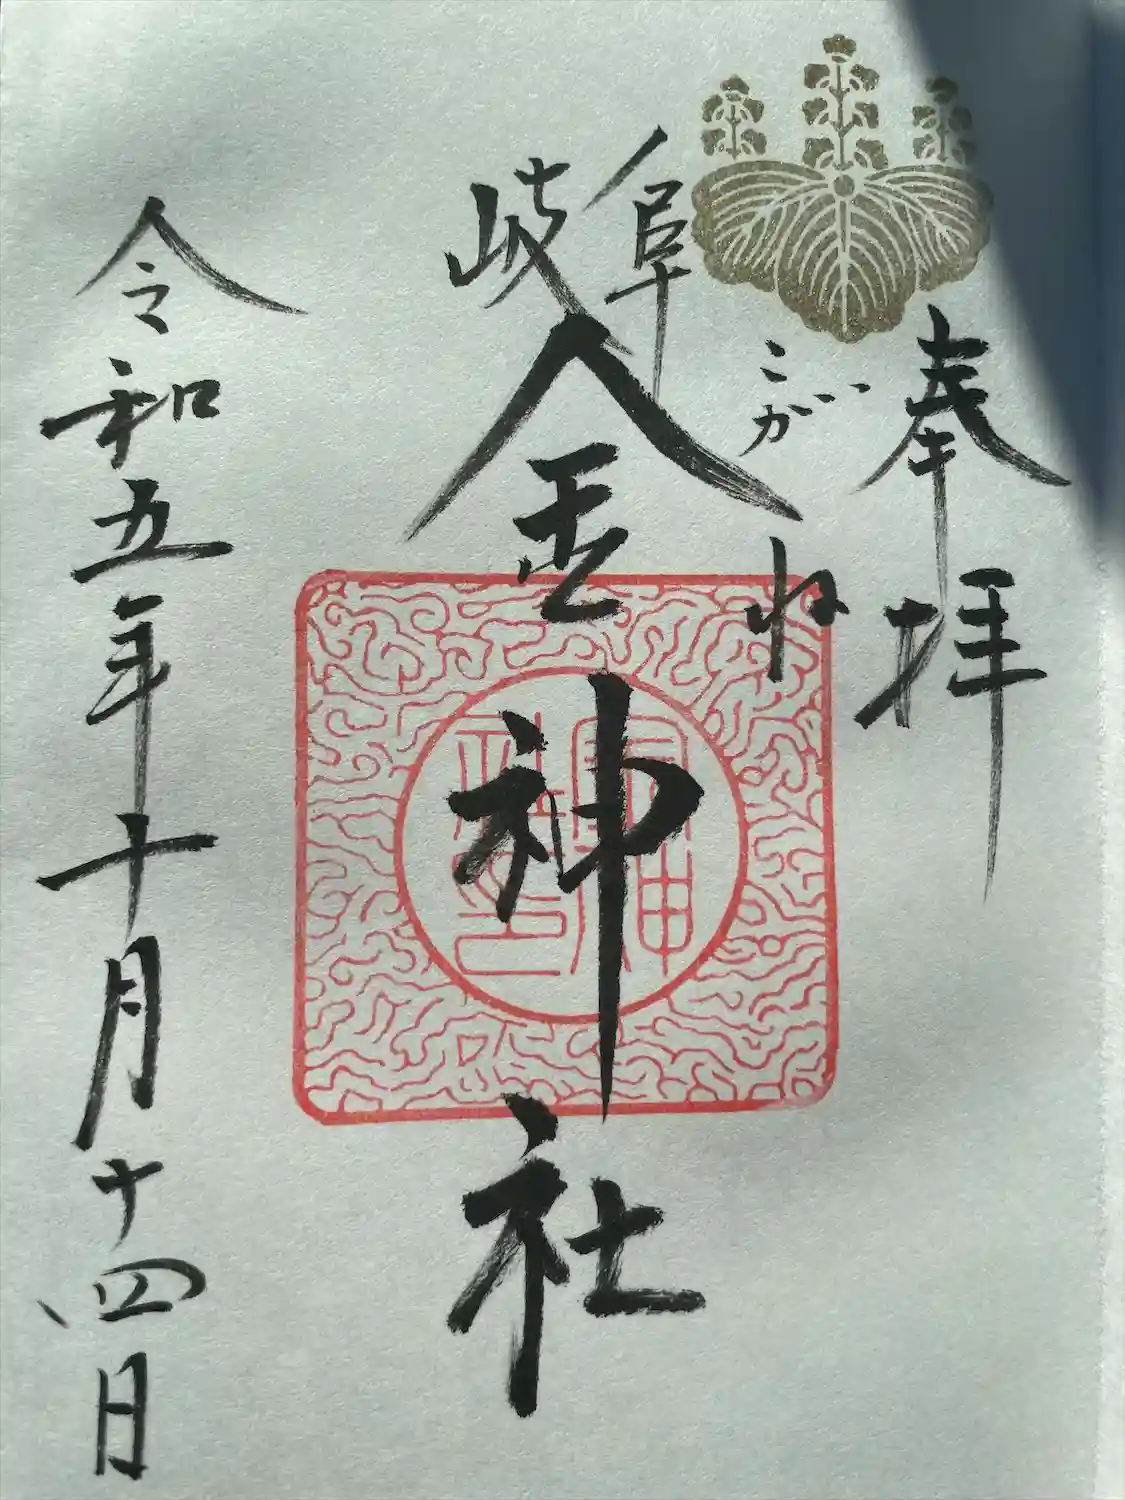 奉拝
岐阜
こがね
金神社
令和五年十月十四日